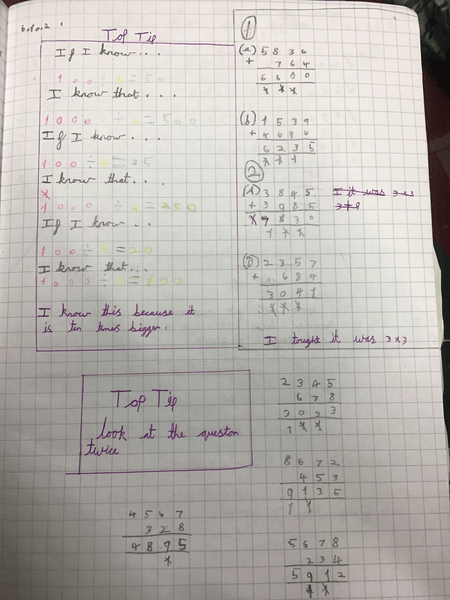 Top Tip
If I know...
100 ÷ 2 = 50
I know that...
1000 ÷ 2 = 500
If I know...
100 ÷ 4 = 25
I know that...
If I know...
I know that...
I know this because it
is ten times bigger.
1
(a) 5 8 3 6
+ 7 6 4
6 6 0 0
(b) 1 5 3 9
+ 4 6 9 6
6 2 3 5
2
3 8 4 5
+ 3 9 8 5
7 8 3 0
2 3 5 7
+ 6 8 4
3 0 4 1
I tought it was 3x3
Top Tip
look at the queston
twice
2 3 4 5
6 7 8
3 0 2 3
1
8 6 7 2
4 5 3
9 1 3 5
1
4 5 6 7
3 2 8
4 8 9 5
5 6 7 8
2 3 4
5 9 1 2